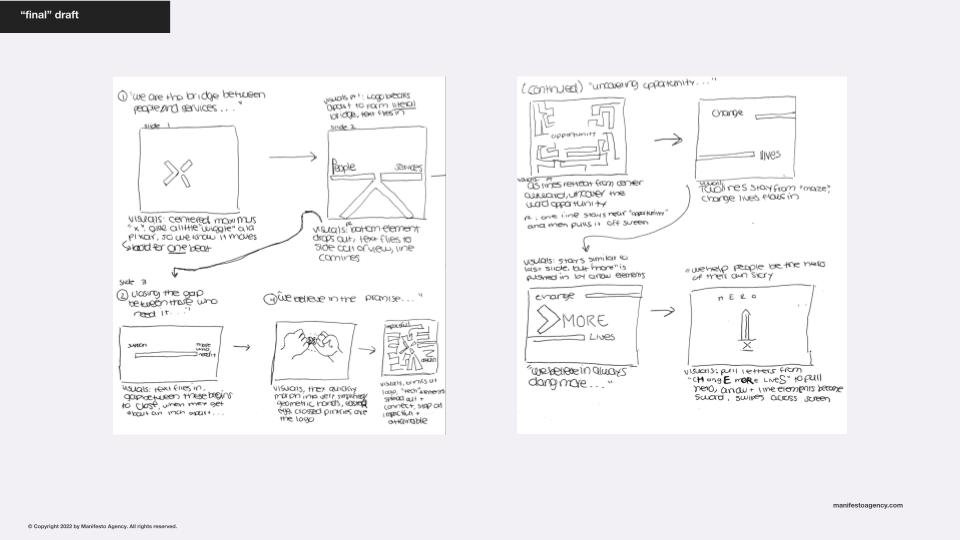 “final” draft
① "we are the bridge between
people and services..."
slide 1
visuals: centered maximus
"x", give a little "wiggle" a la
pixar, so we know it moves
hold for one beat
visuals pt 1: Logo breaks
apart to form literal
bridge, text flies in
slide 2
People
services
visuals: bottom element
drops out, text flies to
side out of view, line
continues
slide 3
② closing the gap
between those who
need it..."
those
who
need it
visuals: text flies in,
gap between these begins
to close, when they get
about an inch apart...
④ "we believe in the promise..."
visuals, they quickly
morph into very simplified
geometric hands,
closed pinkies are
the logo
visuals,
logo, "tech" elements
spread out +
connect, stop on
+
attainable
(continued) "uncovering opportunity..."
opportunity
visuals:
as lines retreat from center
outward, uncover the
word opportunity
: one line stays near "opportunity"
and then pulls it off screen
change
lives
visuals:
Two lines stay from "maze",
change lives flows in
visuals: stays similar to
last slide, but "more" is
pushed in by arrow elements
change
MORE
Lives
"we believe in always
doing more..."
"we help people be the hero
of their own story
HERO
visuals: pull letters from
"cHangE moRe LiveS" to pull
hero, arrow + line elements become
sword, swipes across screen
manifestoagency.com
© Copyright 2022 by Manifesto Agency. All rights reserved.